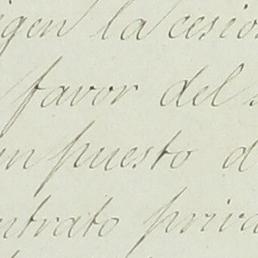 igen la cesió
favor del
impuesto d
ntrato priva